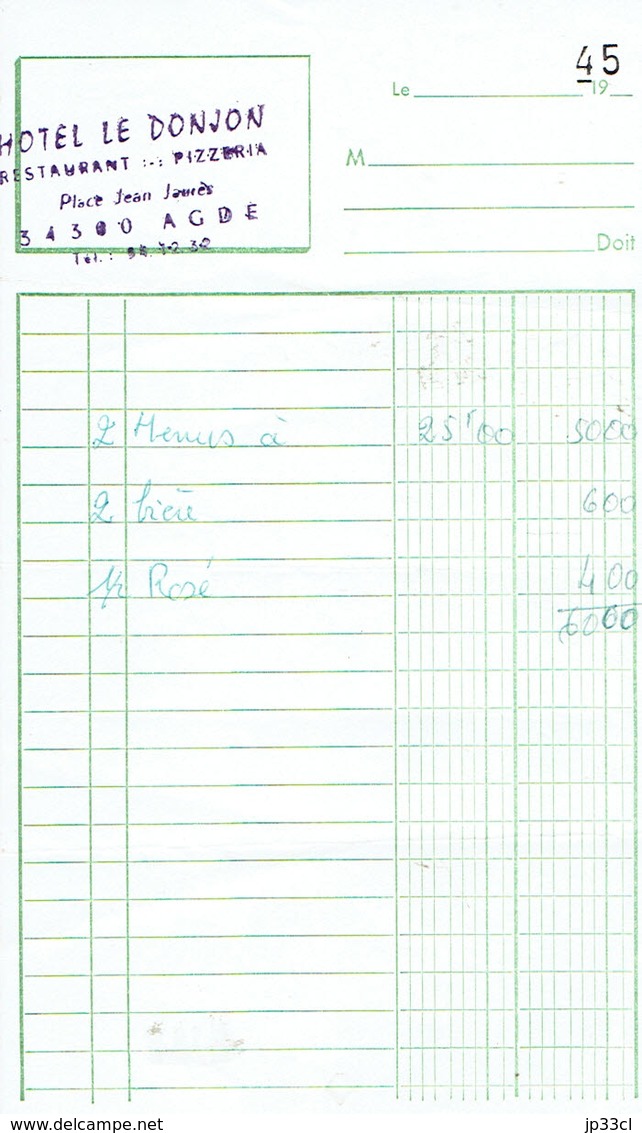 45
Le 19
HOTEL LE DONJON
RESTAURANT :-: PIZZERIA
Place Jean Jaurès
34300 AGDE
Tél. :
M
Doit
2 Menus à 25,00 5000
2 bière 600
1/2 Rosé 400
6000
delcampe.net
jp33cl